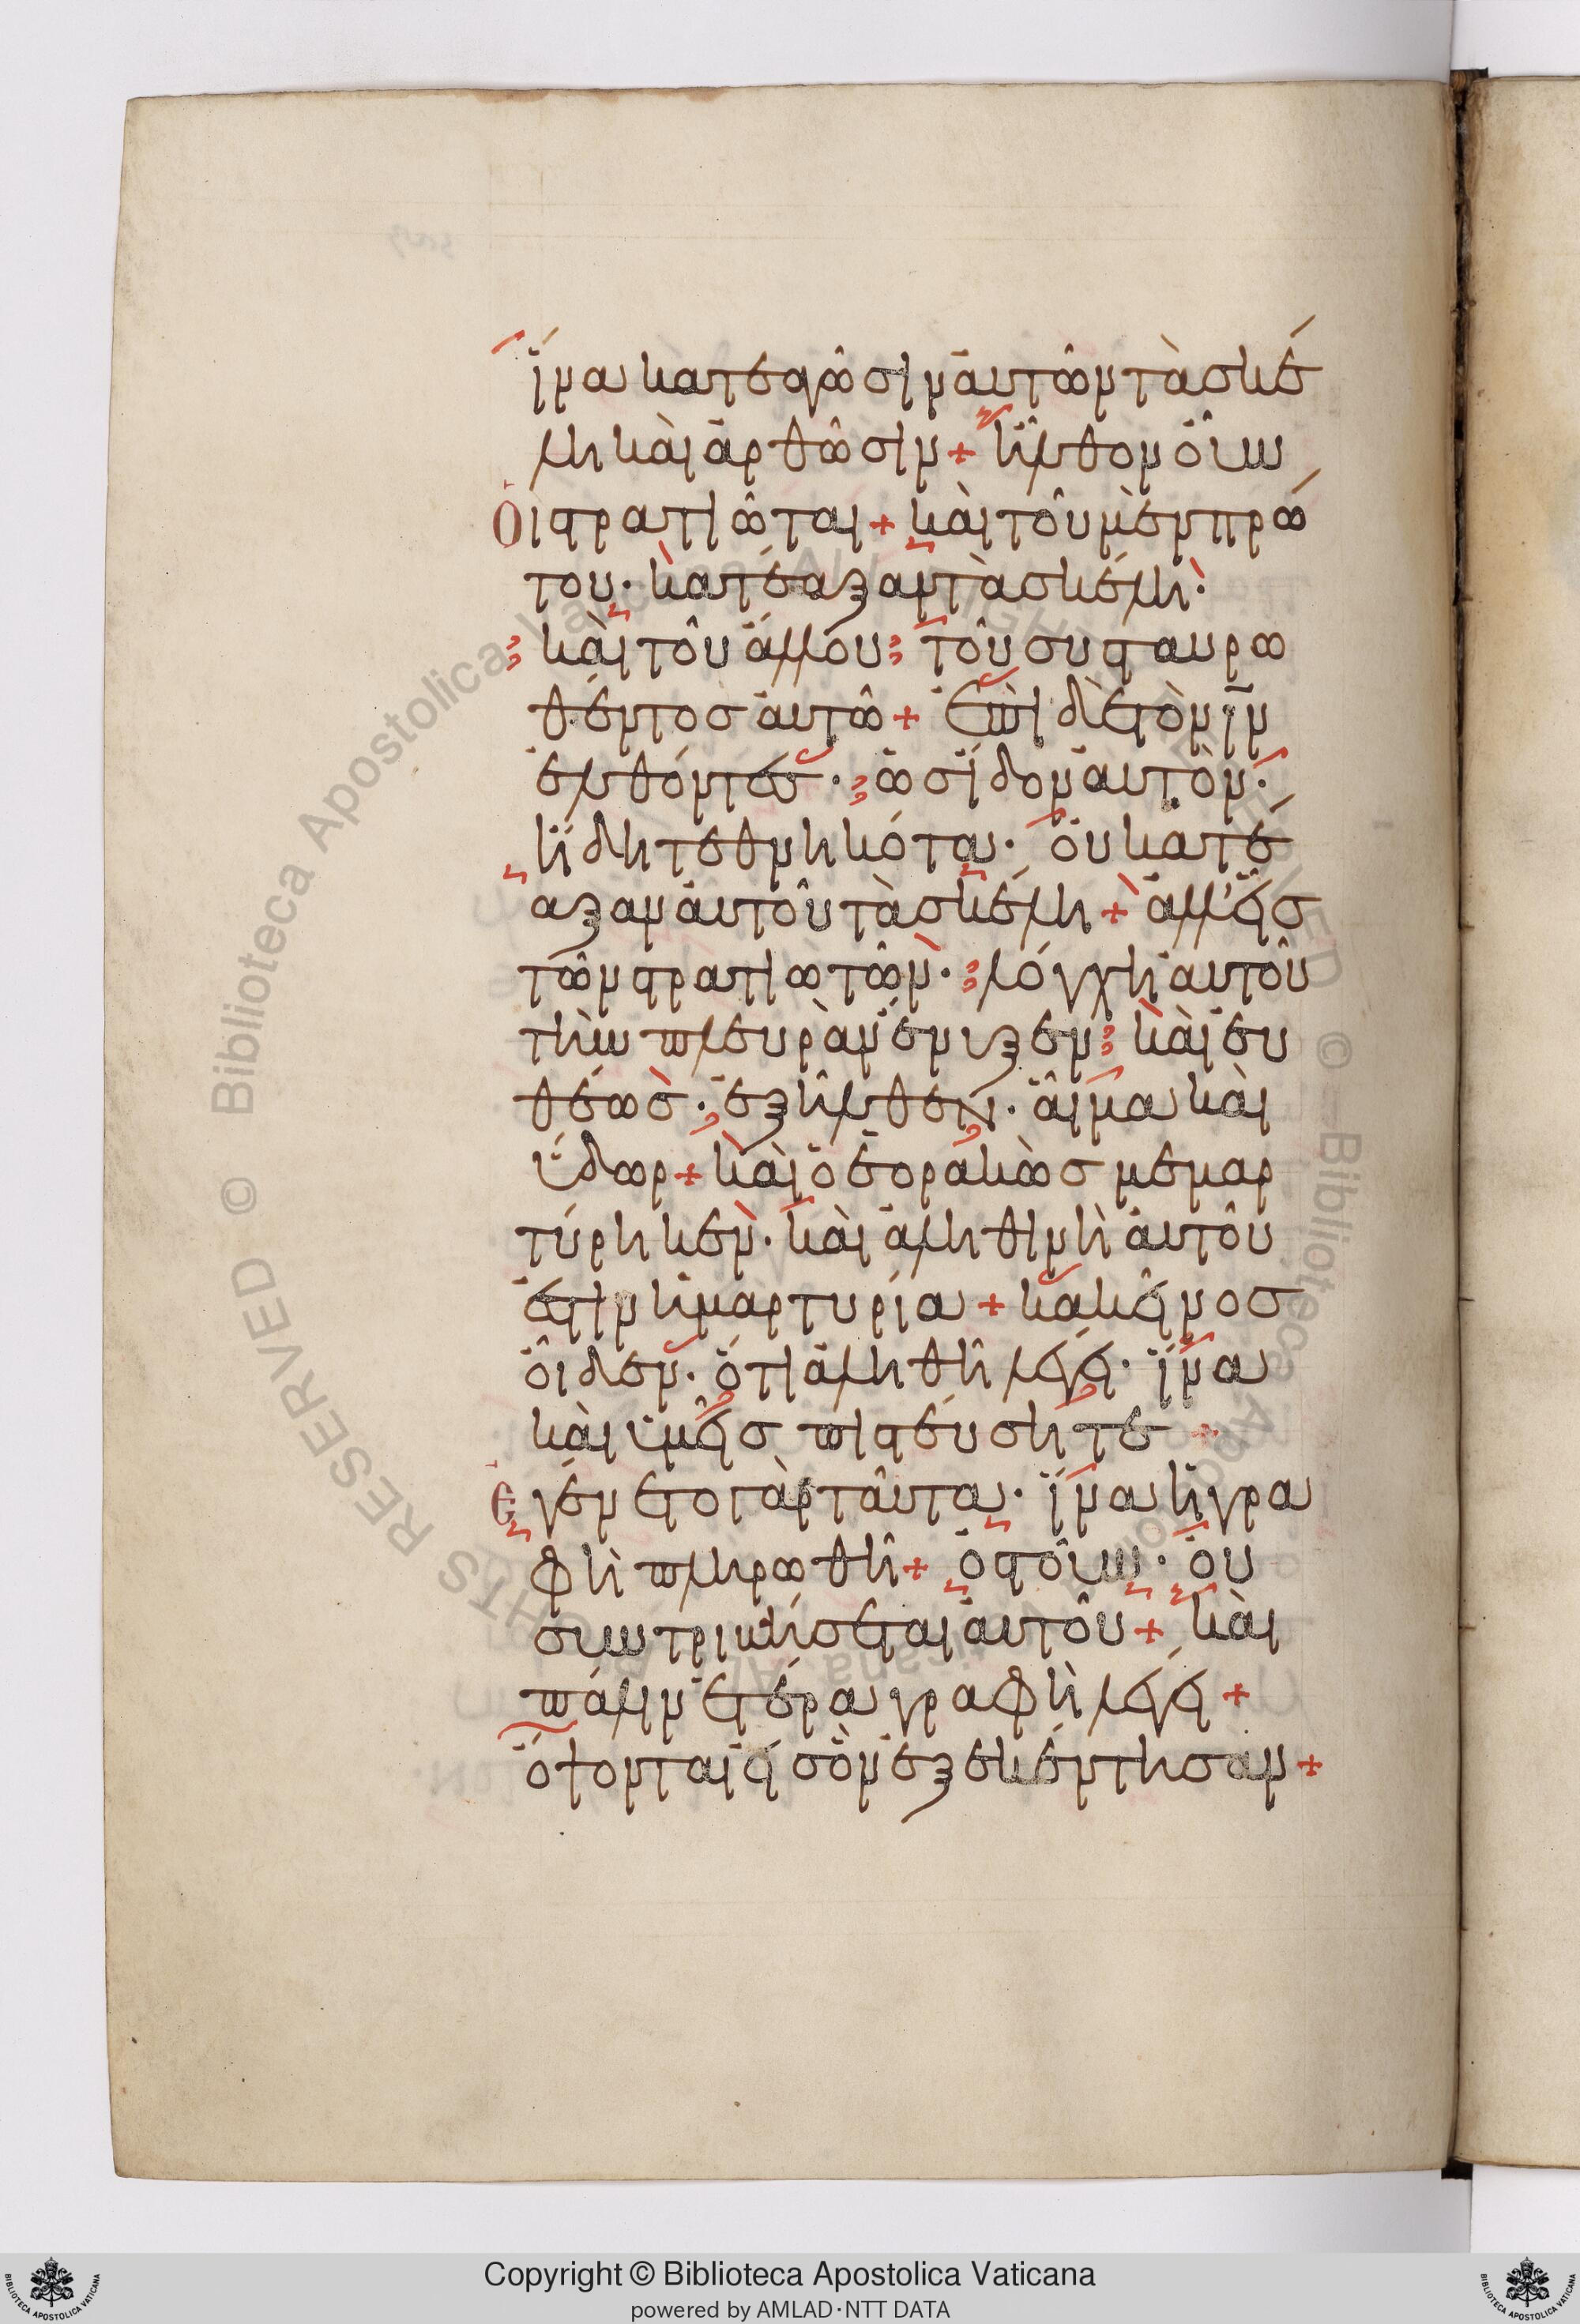 ἵνα κατεαγῶσιν αὐτῶν τὰ σκέ
λη καὶ ἀρθῶσιν + ἦλθον οὖν
Οἱ στρατιῶται + καὶ τοῦ μὲν πρώ
του · κατέαξαν τὰ σκέλη ·
καὶ τοῦ ἄλλου τοῦ συσταυρω
θέντος αὐτῶ + Ἐπὶ δὲ τὸν ῑν
ἐλθόντες · ὡς εἶδον αὐτὸν ·
ἤδη τεθνηκότα · οὐ κατέ
αξαν αὐτοῦ τὰ σκέλη + ἀλλ' εἷς
τῶν στρατιωτῶν · λόγχη αὐτοῦ
τὴν πλευρὰν ἔνυξεν καὶ εὐ
θέως · ἐξῆλθεν · αἷμα καὶ
ὕδωρ + καὶ ὁ ἑορακὼς μεμαρ
τύρηκεν · καὶ ἀληθινὴ αὐτοῦ
ἐστιν ἡ μαρτυρία + κακεῖνος
οἶδεν · ὅτι ἀληθῆ λέγει · ἵνα
καὶ ὑμεῖς πιστεύσητε +
Ἐγένετο γὰρ ταῦτα · ἵνα ἡ γρα
φὴ πληρωθῆ + ὀστοῦν · οὐ
συντριβήσεται αὐτοῦ + καὶ
πάλιν ἑτέρα γραφὴ λέγει +
ὄψονται εἰς ὃν ἐξεκέντησαν +
Copyright © Biblioteca Apostolica Vaticana
powered by AMLAD·NTT DATA